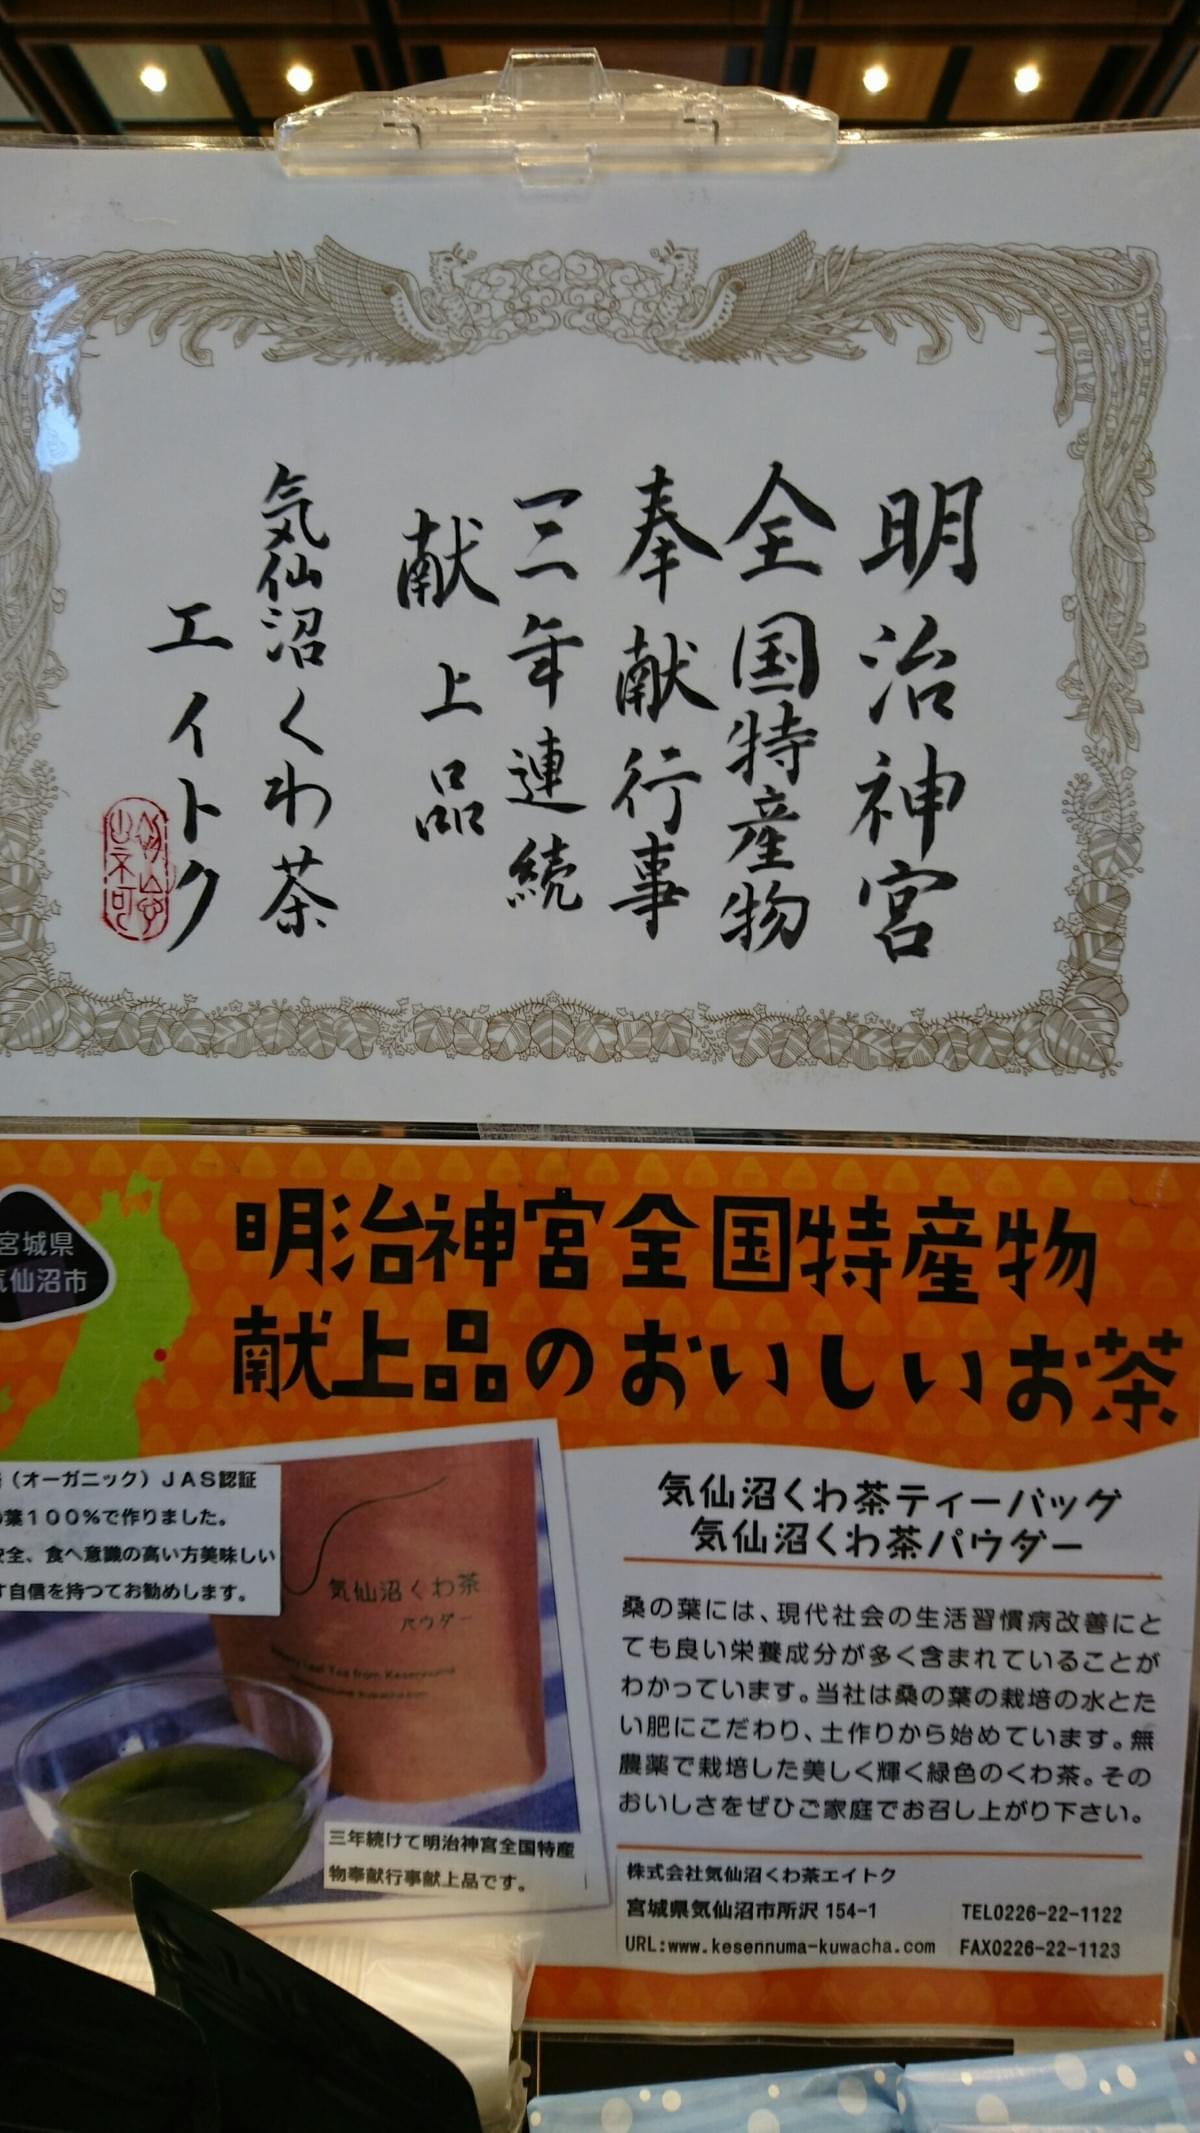 明治神宮
全国特産物
奉献行事
三年連続
献上品
気仙沼くわ茶
エイトク
宮城県
気仙沼市
明治神宮全国特産物
献上品のおいしいお茶
(オーガニック)JAS認証
葉100%で作りました。
安全、食へ意識の高い方美味しい
す自信を持つてお勧めします。
気仙沼くわ茶
パウダー
Leaf Tea from Kesennuma
三年続けて明治神宮全国特産
物奉献行事献上品です。
気仙沼くわ茶ティーバッグ
気仙沼くわ茶パウダー
桑の葉には、現代社会の生活習慣病改善にと
ても良い栄養成分が多く含まれていることが
わかっています。当社は桑の葉の栽培の水とた
い肥にこだわり、土作りから始めています。無
農薬で栽培した美しく輝く緑色のくわ茶。その
おいしさをぜひご家庭でお召し上がり下さい。
株式会社気仙沼くわ茶エイトク
宮城県気仙沼市所沢 154-1 TEL0226-22-1122
URL:www.kesennuma-kuwacha.com FAX0226-22-1123